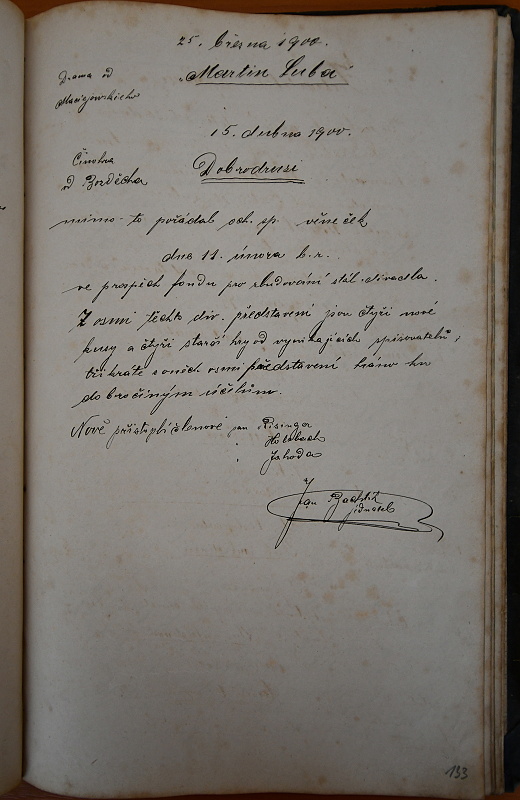 25. března 1900.
Drama od
Maciejowského
„Martin Luba“
15. dubna 1900.
Činohra
od Bozděcha
Dobrodruzi
mimo-to pořádal och. sp. věneček
dne 11. února b.r.
ve prospěch fondu pro zbudování stál. divadla.
Z osmi těchto div. představení jsou čtyři nové
kusy a čtyři starší hry od vynikajících spisovatelů;
třikráte z oněch osmi představení hráno ku
dobročinným účelům.
Nově přistouplí členové pan Risinger
" Holzbach
" Jahoda
Jan
jednatel
133